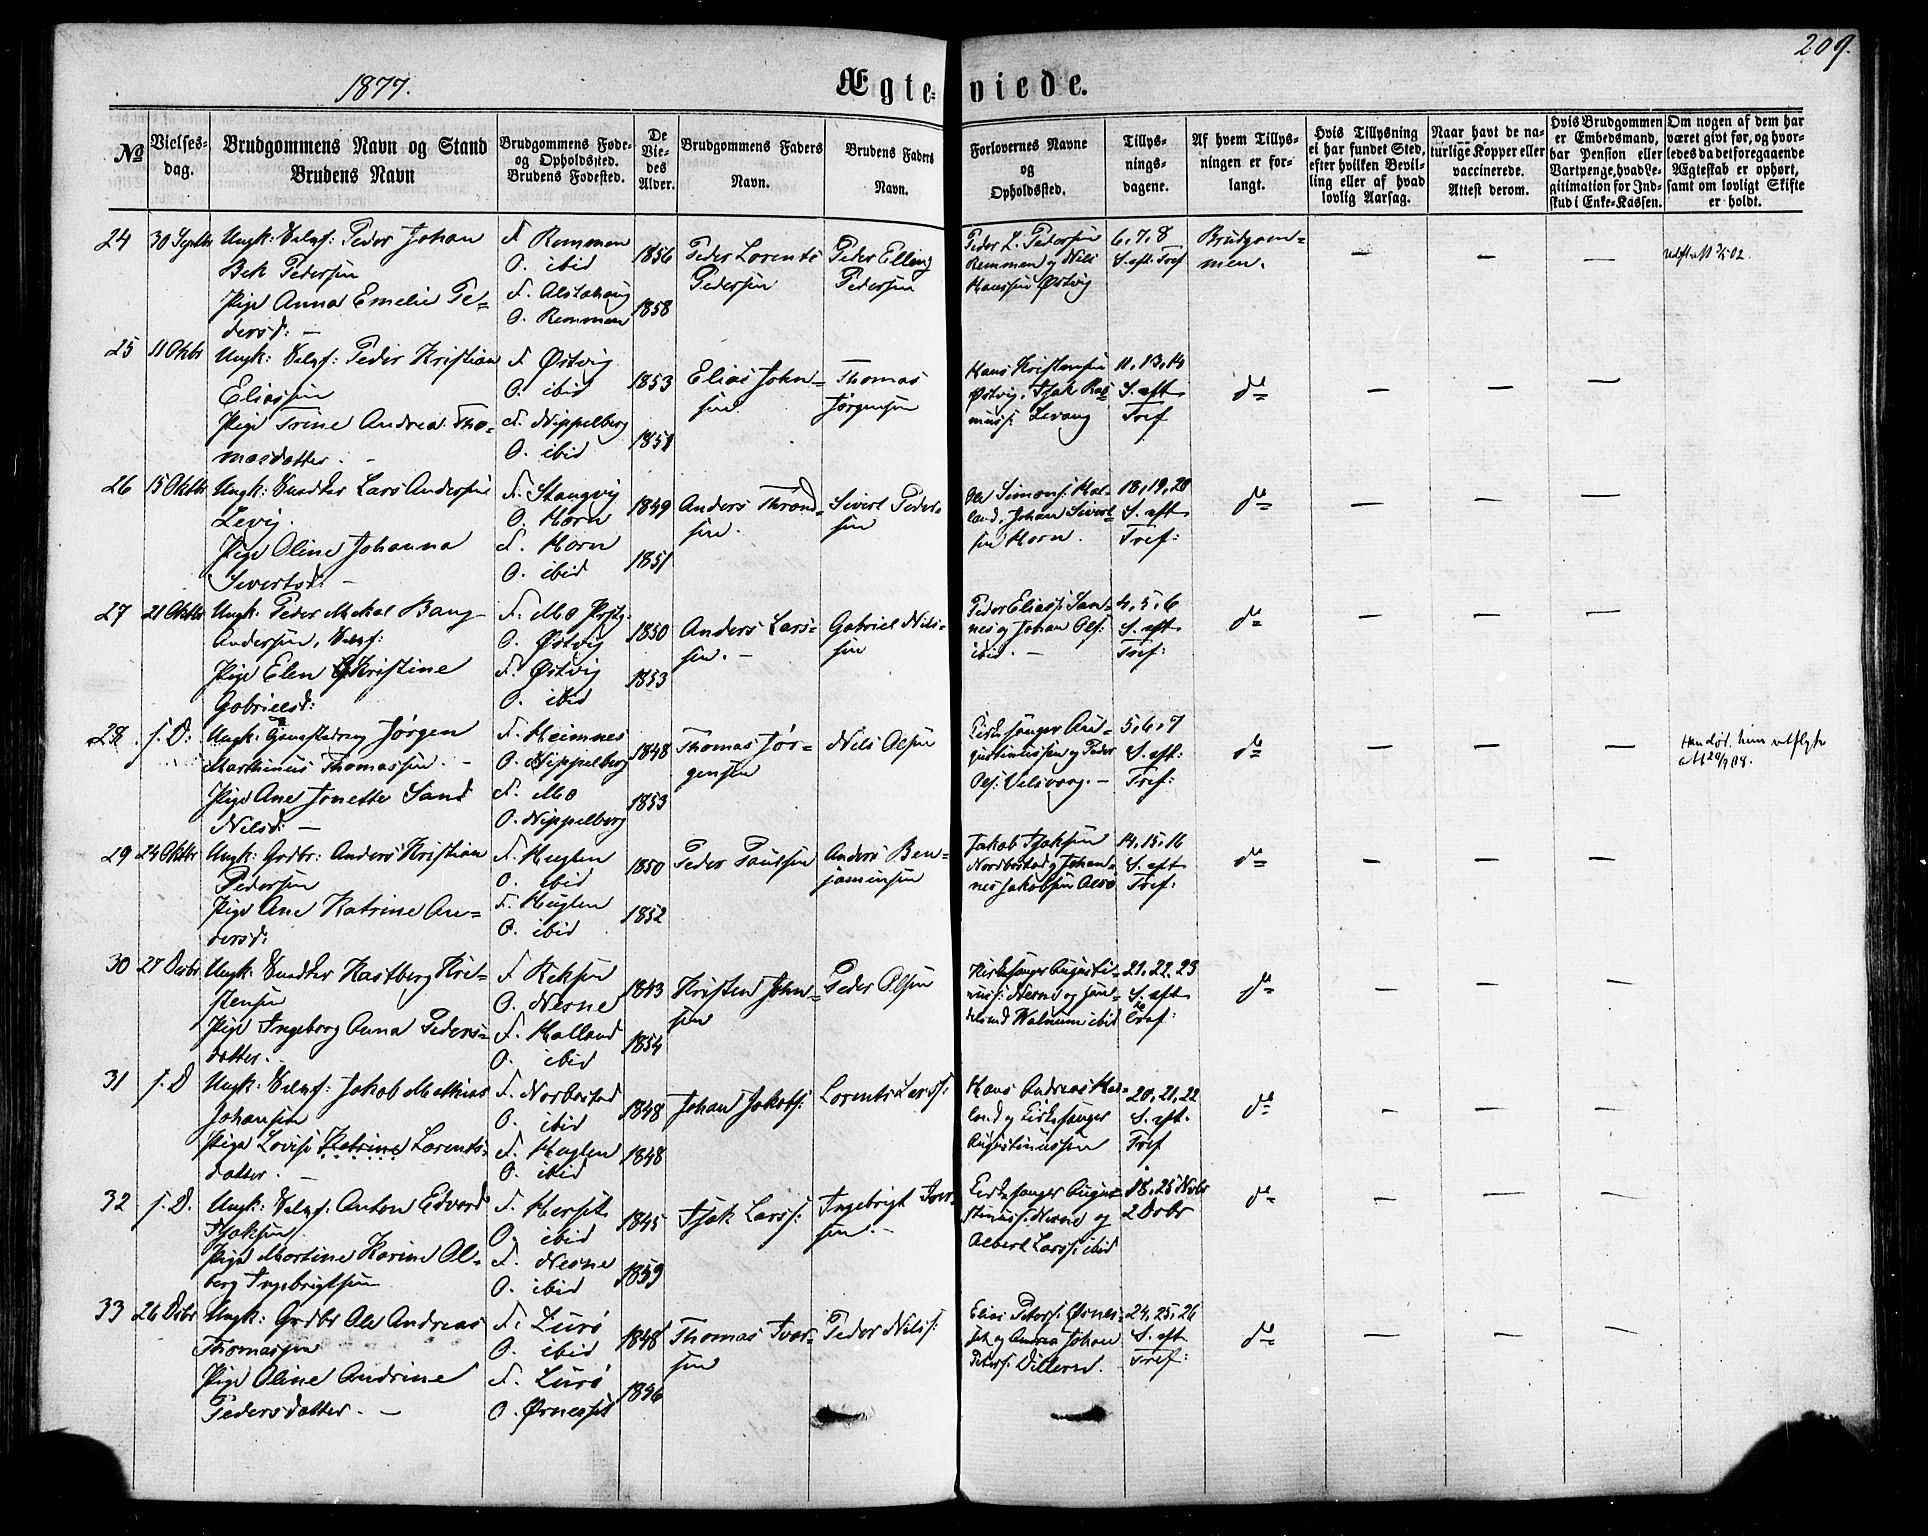 209.
1877.
Ægte-viede.
№
Vielses-
dag.
Brudgommens Navn og Stand
Brudens Navn
Brudgommens Føde-
og Opholdssted.
Brudens Fødested.
De
Vie-
des
Alder.
Brudgommens Faders
Navn.
Brudens Faders
Navn.
Forlovernes Navne
og
Opholdssted.
Tillys-
nings-
dagene.
Af hvem Tillys-
ningen er for-
langt.
Hvis Tillysning
ei har fundet Sted,
efter hvilken Bevil-
ling eller af hvad
lovlig Aarsag.
Naar havt de na-
turlige Kopper eller
vaccinerede.
Attest derom.
Hvis Brudgommen
er Embedsmand,
har Pension eller
Vartpenge, hvad Le-
gitimation for Ind-
skud i Enke-Kassen.
Om nogen af dem har
været givt før, og hvor-
ledes da det foregaaende
Ægteskab er ophørt,
samt om lovligt Skifte
er holdt.
24
30 Septbr
Ungk: Selvf: Peder Johan
Bek Pedersen
Pige Anna Emelie Pe-
dersd: —
F. Remmen
O. ibid
F. Alstahaug
O. Remmen
1856
1858
Peder Lorents
Pedersen
Peder Elling
Pedersen
Peder L. Pedersen
Remmen og Nils
Hanssen Østvig
6, 7, 8
S. eft: Tref
Brudgom-
men.
— — —
25
11 Oktbr
Ungk: Selvf: Peder Kristian
Eliassen
Pige Trine Andrea Tho-
masdatter. -
F. Østvig
O. ibid
F. Nippelberg
O. ibid
1853
1851
Elias John-
sen
Thomas
Jørgensen
Hans Kristensen
Østvig, Isak Ras-
muss: Levang
11, 13, 14
S. eft
Tref
do
— — —
26
15 Oktbr
Ungk: Lars Anderssen
Levig.
Pige Oline Johanna
Sivertsd: —
F. Stangvig
O. Horn
F. Horn
O. ibid
1849
1851
Anders Thrond-
sen.
Sivert Peder-
sen
Ole Simons: Hal-
land, Johan Sivert-
sen Horn.
18, 19, 20
S. eft
Tref:
do
— — —
27
21 Oktbr
Ungk: Peder Mekal Bang
Andersen, Selvf:
Pige Elen Kristine
Gabrielsd:
F. Mo Prstg.
O. Østvig
F. Østvig
O. ibid
1850
1853
Anders Lars-
sen. -
Gabriel Nils-
sen
Peder Eliass: San-
nes og Johan Ols:
ibid. -
4, 5, 6
S. eft
Tref:
do
— — —
28.
s. D:
Ungk: Jørgen
Marthinus Thomassen. -
Pige Ane Jonette Sand
Nilsd: —
F. Heimnes
O. Nippelberg
F. Mo
O. Nippelberg
1848
1853
Thomas Jør-
gensen
Nils Olsen
Kirkesanger Au-
gustinussen og Peder
Ols: Valsvaag. -
5, 6, 7
S. eft:
Tref:
do
— — —
29
24 Oktbr
Ungk: Grdbr: Anders Kristian
Pedersen
Pige Ane Katrine An-
dersd:
F. Huglen
O. ibid
F. Huglen
O. ibid
1850
1852
Peder Paulsen
Anders Ben-
jaminsen
Jakob Isaksen
Nordbostad og Johan-
nes Jakobsen
14, 15, 16
S. eft
Tref:
do
— — —
30
27 Decbr
Ungk: Hastberg Kri-
stensen
Pige Ingeborg Anna Peders-
datter. -
O. Nesne
F. Halland
O. ibid
1843
1854
Kristen John-
sen
Peder Olsen
Kirkesanger Augusti-
nuss: Nesne og
Walnum ibid
21, 22, 23
S. eft
Tref:
do
— — —
31
s. D
Ungk: Selvf: Jakob Mathias
Johansen
Pige Lovise Katrine Lorents-
datter. —
F. Norbostad
O. ibid
F. Huglen
O. ibid
1848
1848
Johan Jakobs:
Lorents Larss:
Hans Andreas Hal-
land og Kirkesanger
Augustinussen
20, 21, 22
S. eft.
Tref
do
— — —
32
s. D.
Ungk: Selvf: Anton Edvard
Isaksen
Pige Martine Karine Al-
berg Ingebrigtsen
O. ibid
F. Nesne
O. ibid
1845
1859
Isak Larss:
Ingebrigt Iver-
sen. —
Kirkesanger Augu-
stinuss: Nesne og
Albert Larss: ibid
18, 25 Novbr
2 Decbr
do
— — —
33
26 Decbr
Ungk: Grdbr Ole Andreas
Thomassen
Pige Oline Andrine
Pedersdatter. —
F. Lurø
O. ibid
F. Lurø
1848
1856
Thomas Iver-
sen
Peder Nils:
Elias Peters: Øsnes-
set og Andrea Johan
Peters:
24, 25, 26
S. eft
Tref:
do
— — —